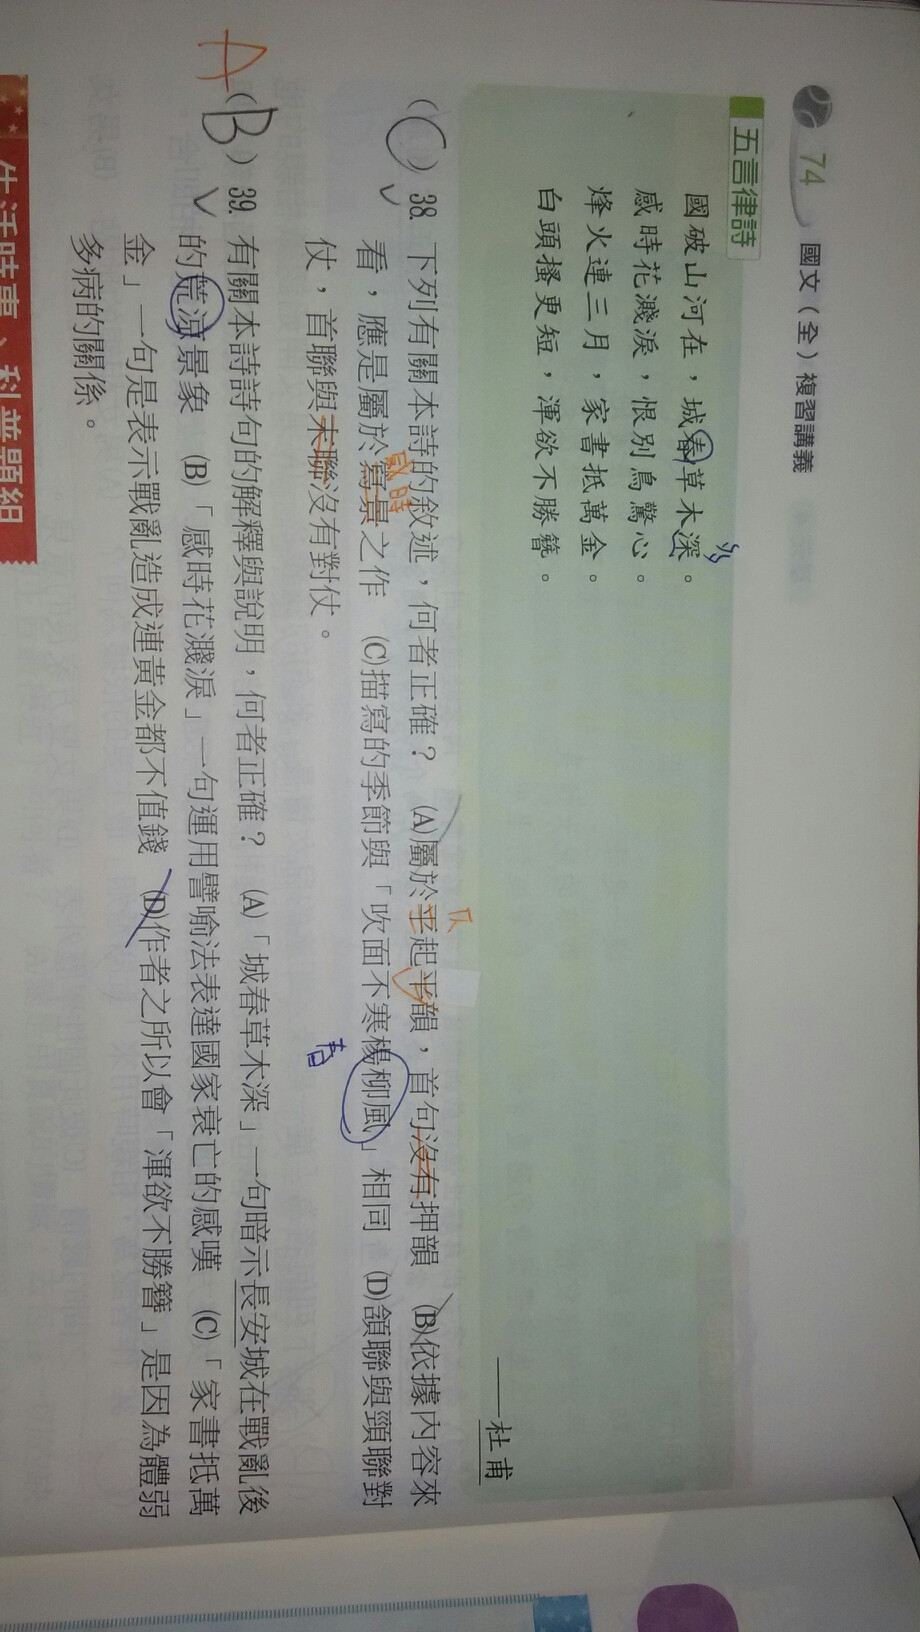 74 國文（全）複習講義
五言律詩
國破山河在，城春草木深。
多
感時花濺淚，恨別鳥驚心。
烽火連三月，家書抵萬金。
白頭搔更短，渾欲不勝簪。
——杜甫
(C) 38. 下列有關本詩的敘述，何者正確？ (A)屬於平起平韻，首句沒有押韻 (B)依據內容來
仄
感時
看，應是屬於寫景之作 (C)描寫的季節與「吹面不寒楊柳風」相同 (D)頷聯與頸聯對
春
仗，首聯與末聯沒有對仗。
A
(B) 39. 有關本詩詩句的解釋與說明，何者正確？ (A)「城春草木深」一句暗示長安城在戰亂後
的荒涼景象 (B)「感時花濺淚」一句運用譬喻法表達國家衰亡的感嘆 (C)「家書抵萬
金」一句是表示戰亂造成連黃金都不值錢 (D)作者之所以會「渾欲不勝簪」是因為體弱
多病的關係。
生活時事、科普題組